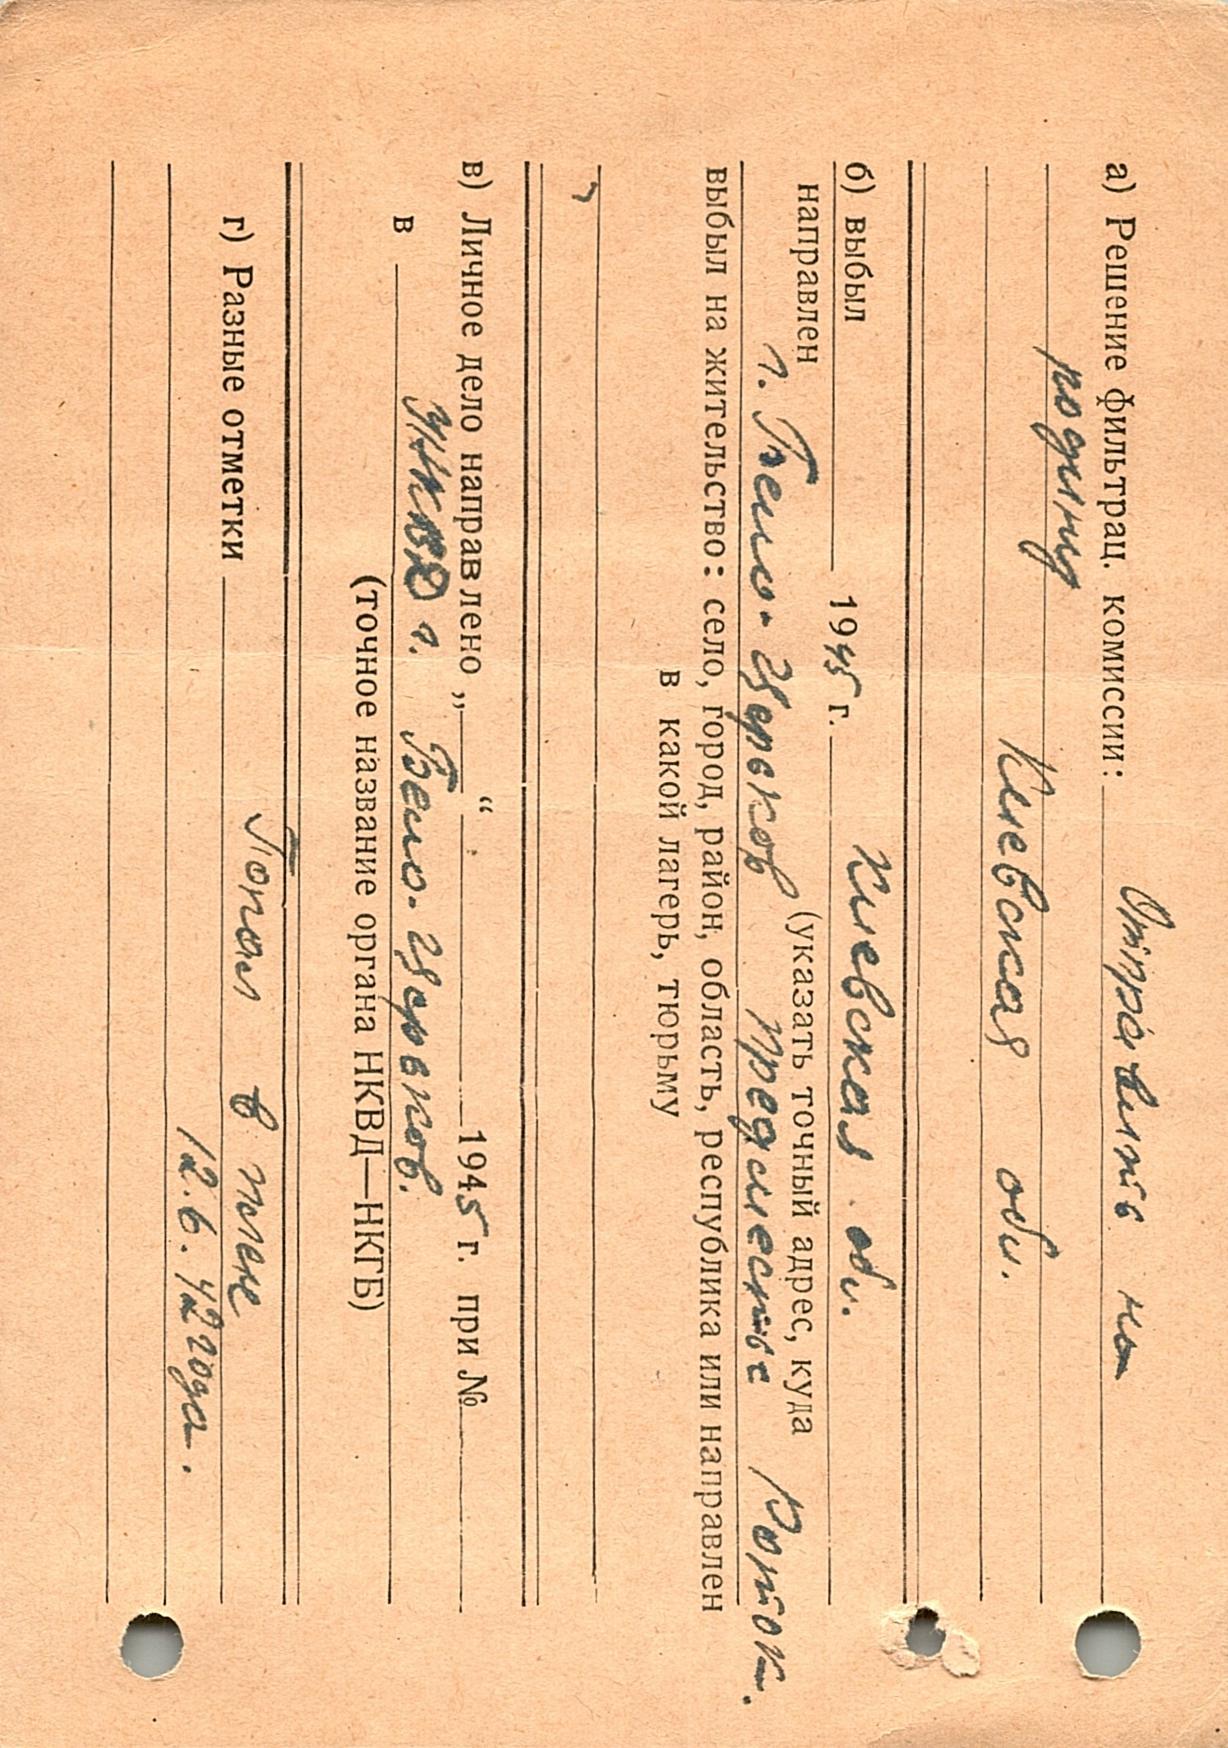 а) Решение фильтрац. комиссии: Отправить на
родину
Киевская обл.
б) выбыл 1945 г. Киевская обл.
направлен (указать точный адрес, куда
г. Бело-Церков предместье Роток.
выбыл на жительство: село, город, район, область, республика или направлен
в какой лагерь, тюрьму
в) Личное дело направлено „ “ 1945 г. при №
в НКВД г. Бело-Церков.
(точное название органа НКВД—НКГБ)
г) Разные отметки Попал в плен
12.6.42 года.